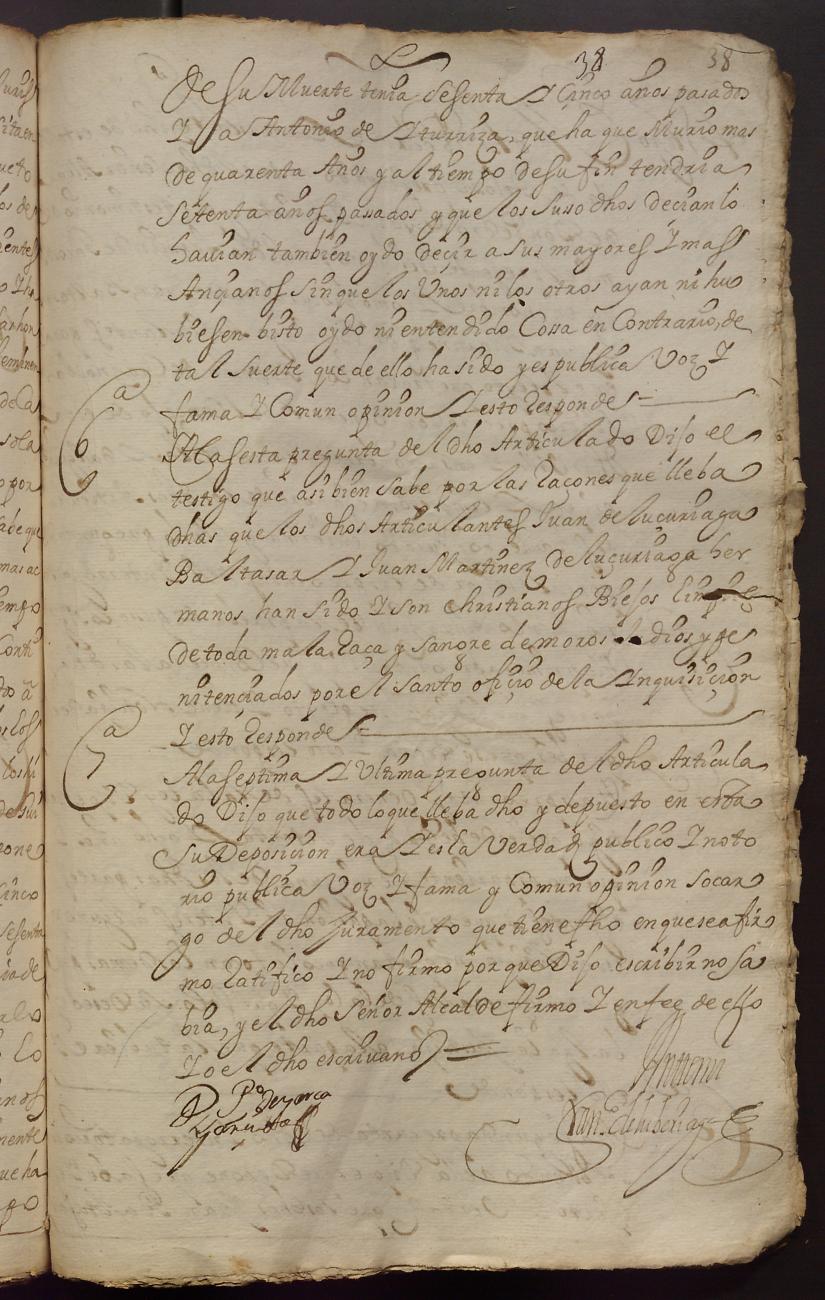 38 38
de su Muerte tenia sesenta Y Cinco años pasados
Y a Antonio de Yturriza, que ha que Murio mas
de quarenta Años y al tiempo de su fin tendria
setenta años pasados y que los suso dhos decian lo
havian tambien oydo decir a sus mayores Y mas
Ançianos sin que los Unos ni los otros ayan ni hu
biesen bisto oydo ni entendido Cossa en Contrario, de
tal suerte que de ello ha sido y es publica Voz Y
fama Y Comun opinion Y esto Responde
6a
A la sesta pregunta del dho Articulado Dijo el
testigo que asi bien sabe por las Raçones que lleba
dhas que los dhos Articulantes Juan de luçuriaga
Baltasar Y Juan Martinez de luçuriaga her
manos han sido Y son christianos Biejos limpios
de toda mala Raça y sangre de moros Judios y pe
nitenciados por el santo ofiçio de la Ynquisiçion
Y esto Responde
7a
A la septima Y Ultima pregunta del dho Articula
do Dijo que todo lo que lleba dho y depuesto en esta
su Deposicion era Y es la Verdad publico Y noto
rio publica Voz Y fama y Comun opinion so car
go del dho juramento que tiene fho en que se afir
mo Ratifico Y no firmo porque Dijo escribir no sa
bia, y el dho señor Alcalde firmo Y en fee de ello
Yo el dho escrivano
D Po de
Antemi